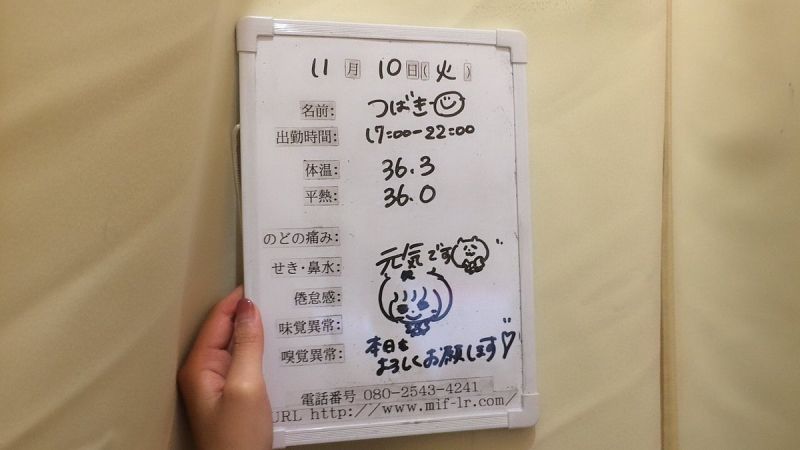 11月10日(火)
名前: つばき
出勤時間: 17:00-22:00
体温: 36.3
平熱: 36.0
のどの痛み:
せき・鼻水: 元気です
倦怠感:
味覚異常:
嗅覚異常: 本日も
よろしくお願します♡
電話番号 080-2543-4241
URL http://www.mif-lr.com/